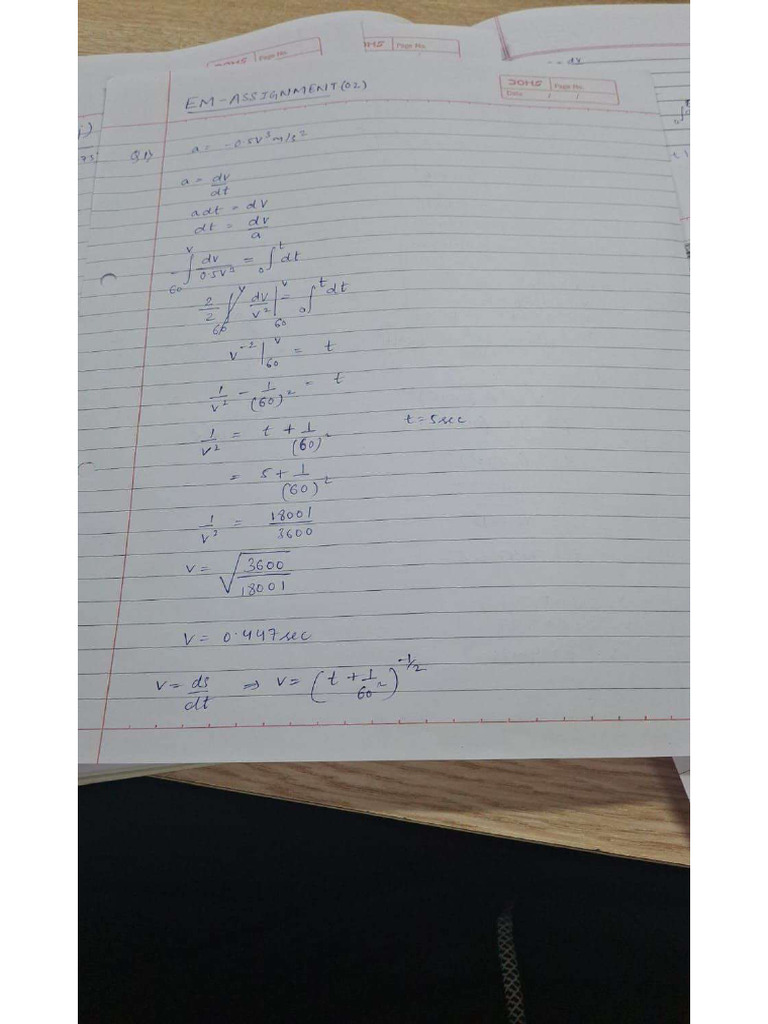 JOHS Page No.
JOHS Page No.
dv
EM-ASSIGNMENT(02)
JOHS Page No.
Date / /
Q.1) a = -0.5v³ m/s²
a = dv/dt
adt = dv
dt = dv/a
-∫₆₀ᵛ dv/0.5v³ = ₀∫ᵗ dt
2/2 ∫₆₀ᵛ dv/v² |₆₀ᵛ = ₀∫ᵗ dt
v⁻² |₆₀ᵛ = t
1/v² - 1/(60)² = t
1/v² = t + 1/(60)² t = 5sec
= 5 + 1/(60)²
1/v² = 18001/3600
v = √(3600/18001)
v = 0.447sec
v = ds/dt ⇒ v = (t + 1/60²)^(-1/2)